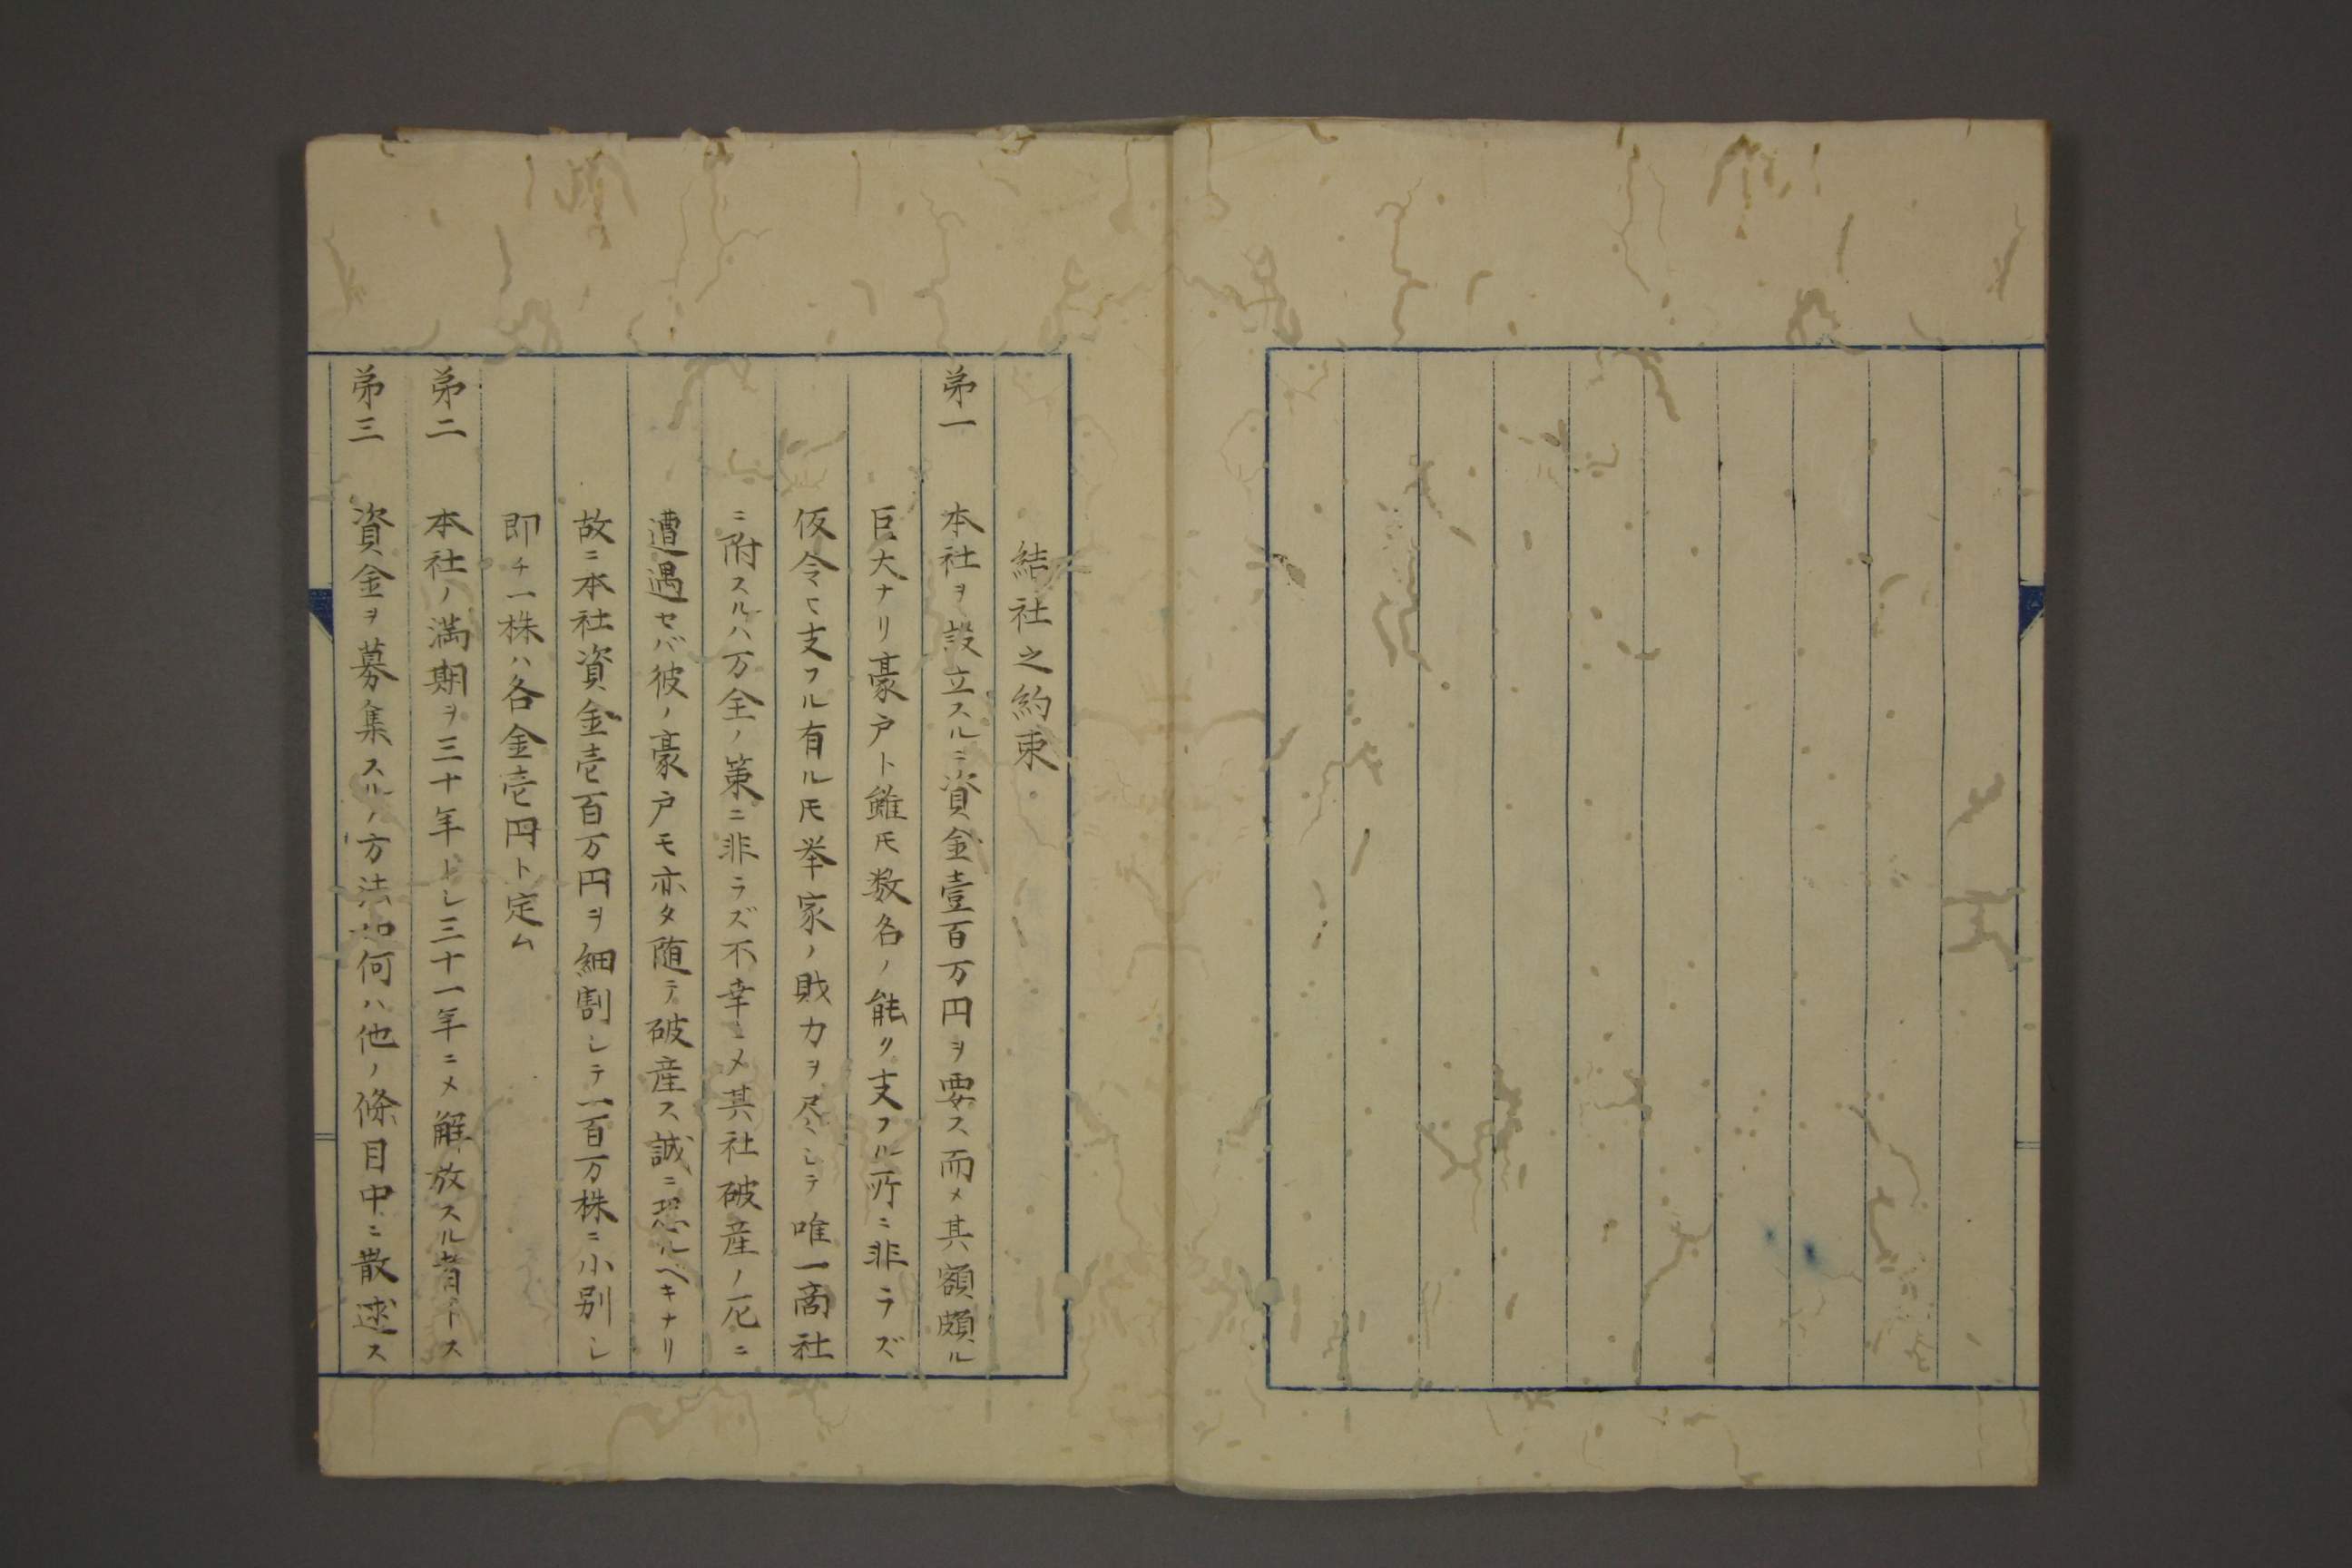 結社之約束
第一 本社ヲ設立スルニ資金壹百万円ヲ要ス而〆其額頗ル
巨大ナリ豪戸ト雖𪜈数名ノ能ク支フル所ニ非ラズ
仮令ヒ支フル有ル𪜈挙家ノ財力ヲ尽シテ唯一商社
ニ附スルハ万全ノ策ニ非ラズ不幸ニ〆其社破産ノ厄ニ
遭遇セバ彼ノ豪戸モ亦タ随テ破産ス誠ニ恐ルベキナリ
故ニ本社資金壱百万円ヲ細割シテ一百万株ニ小別シ
即チ一株ハ各金壱円ト定ム
第二 本社ノ満期ヲ三十年トシ三十一年ニ〆解放スル者トス
第三 資金ヲ募集スルノ方法如何ハ他ノ條目中ニ散述ス